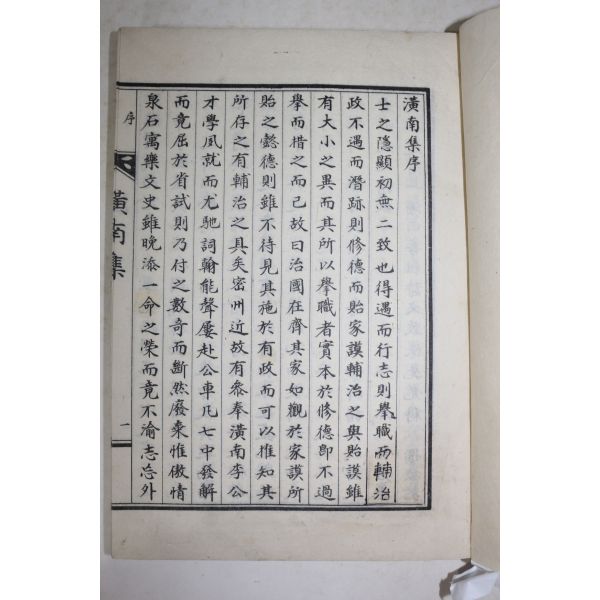 潢南集序
士之隱顯初無二致也得遇而行志則擧職而輔治
政不遇而潛跡則修德而貽家謨輔治之與貽謨雖
有大小之異而其所以擧職者實本於修德卽不過
擧而措之而已故曰治國在齊其家如觀於家謨所
貽之懿德則雖不待見其施於有政而可以推知其
所存之有輔治之具矣密州近故有叅奉潢南李公
才學夙就而尤馳詞翰能聲屢赴公車凡七中發解
而竟屈於省試則乃付之數奇而斷然廢棄惟傲情
泉石寓樂文史雖晚添一命之榮而竟不渝志忘外
序
潢南集
一